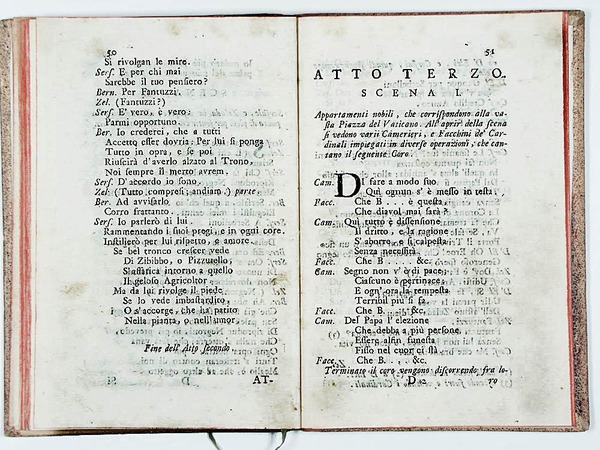 50
Si rivolgan le mire.
Serf. E per chi mai
Sarebbe il tuo pensiero?
Bern. Per Fantuzzi.
Zel. (Fantuzzi?)
Serf. E' vero, è vero:
Parmi opportuno.
Ber. Io crederei, che a tutti
Accetto esser dovria: Per lui si ponga
Tutto in opra, e se poi
Riuscirà d'averlo alzato al Trono,
Noi sempre il merto avrem.
Serf. D'accordo io sono.
Zel. (Tutto compresi; andiam.) parte.
Ber. Ad avvisarlo
Corro frattanto.
Serf. Io parlerò di lui.
Rammentando i suoi pregi, e in ogni core.
Instillerò per lui rispetto, e amore.
Se bel tronco crescer vede
Di Zibibbo, o Pizzutello,
Slasciasi intorno a quello
Il geloso Agricoltor
Ma da lui rivolge il piede
Se lo vede imbastardito,
O s'accorge, che ha patito
Nella pianta, o nell'umor.
Fine dell' Atto secondo.
AT-
51
ATTO TERZO.
SCENA I.
Appartamenti nobili, che corrispondono alla va-
sta Piazza del Vaticano. All' aprir della scena
si vedono varii Camerieri, e Facchini de' Car-
dinali impiegati in diverse operazioni, che can-
tano il seguente Coro.
Cam. DI fare a modo suo
Qui ognun s' è messo in testa.
Facc. Che B . . . . è questa,
Che diavol mai sarà?
Cam. Qui tutto è dissensione,
Il dritto, e la ragione
S' aborre, e si calpesta
Senza necessità.
Facc. Che B . . . . &c.
Cam. Segno non v' è di pace,
Ciascuno è pertinace,
E ogn' ora la tempesta
Terribil più si fa.
Facc. Che B . . . &c.
Cam. Del Papa l' elezione
Che debba a più persone
Essere alfin funesta
Fisso nel cuor ci stà
Facc. Che B . . . &c.
Terminato il coro vengono discorrendo fra lo-
D
ro